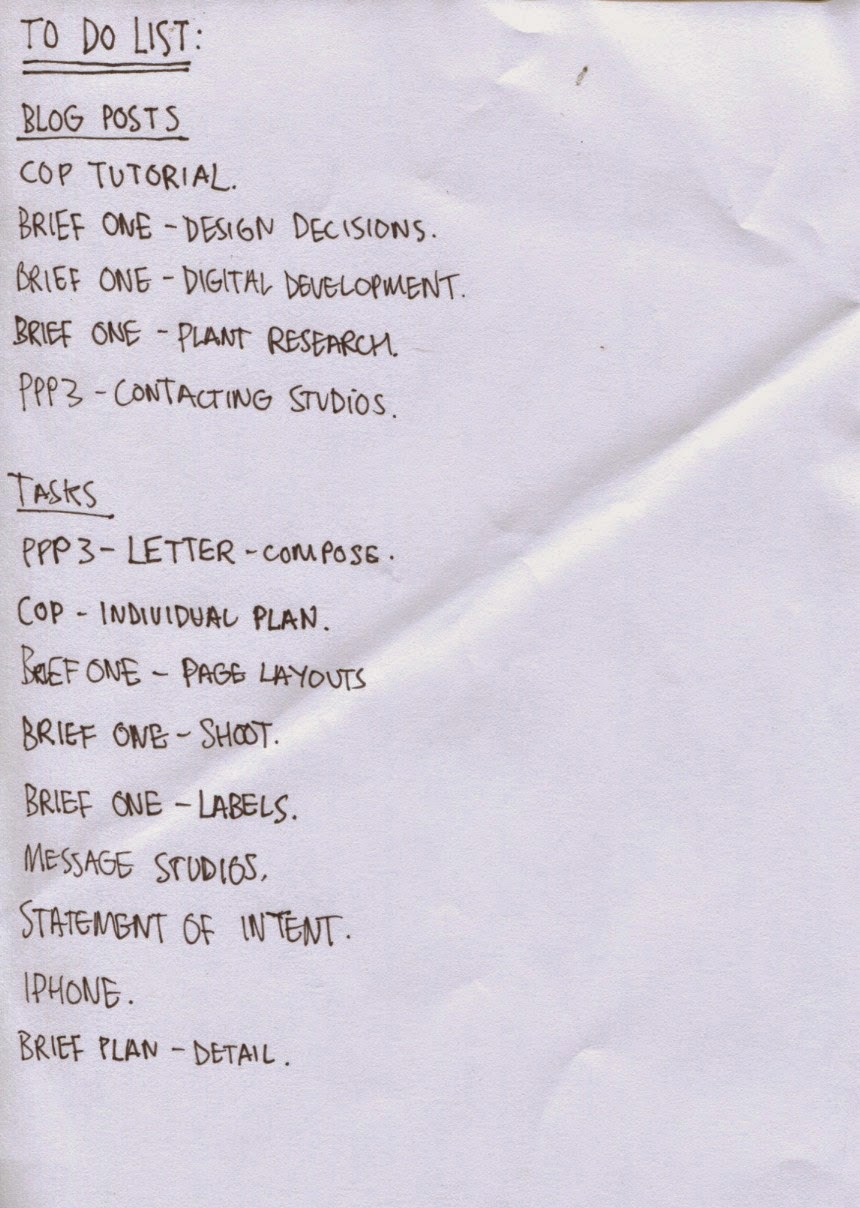 TO DO LIST:
BLOG POSTS
COP TUTORIAL.
BRIEF ONE - DESIGN DECISIONS.
BRIEF ONE - DIGITAL DEVELOPMENT.
BRIEF ONE - PLANT RESEARCH.
PPP3 - CONTACTING STUDIOS.
TASKS
PPP3 - LETTER - COMPOSE.
COP - INDIVIDUAL PLAN.
BRIEF ONE - PAGE LAYOUTS
BRIEF ONE - SHOOT.
BRIEF ONE - LABELS.
MESSAGE STUDIOS,
STATEMENT OF INTENT.
IPHONE.
BRIEF PLAN - DETAIL.